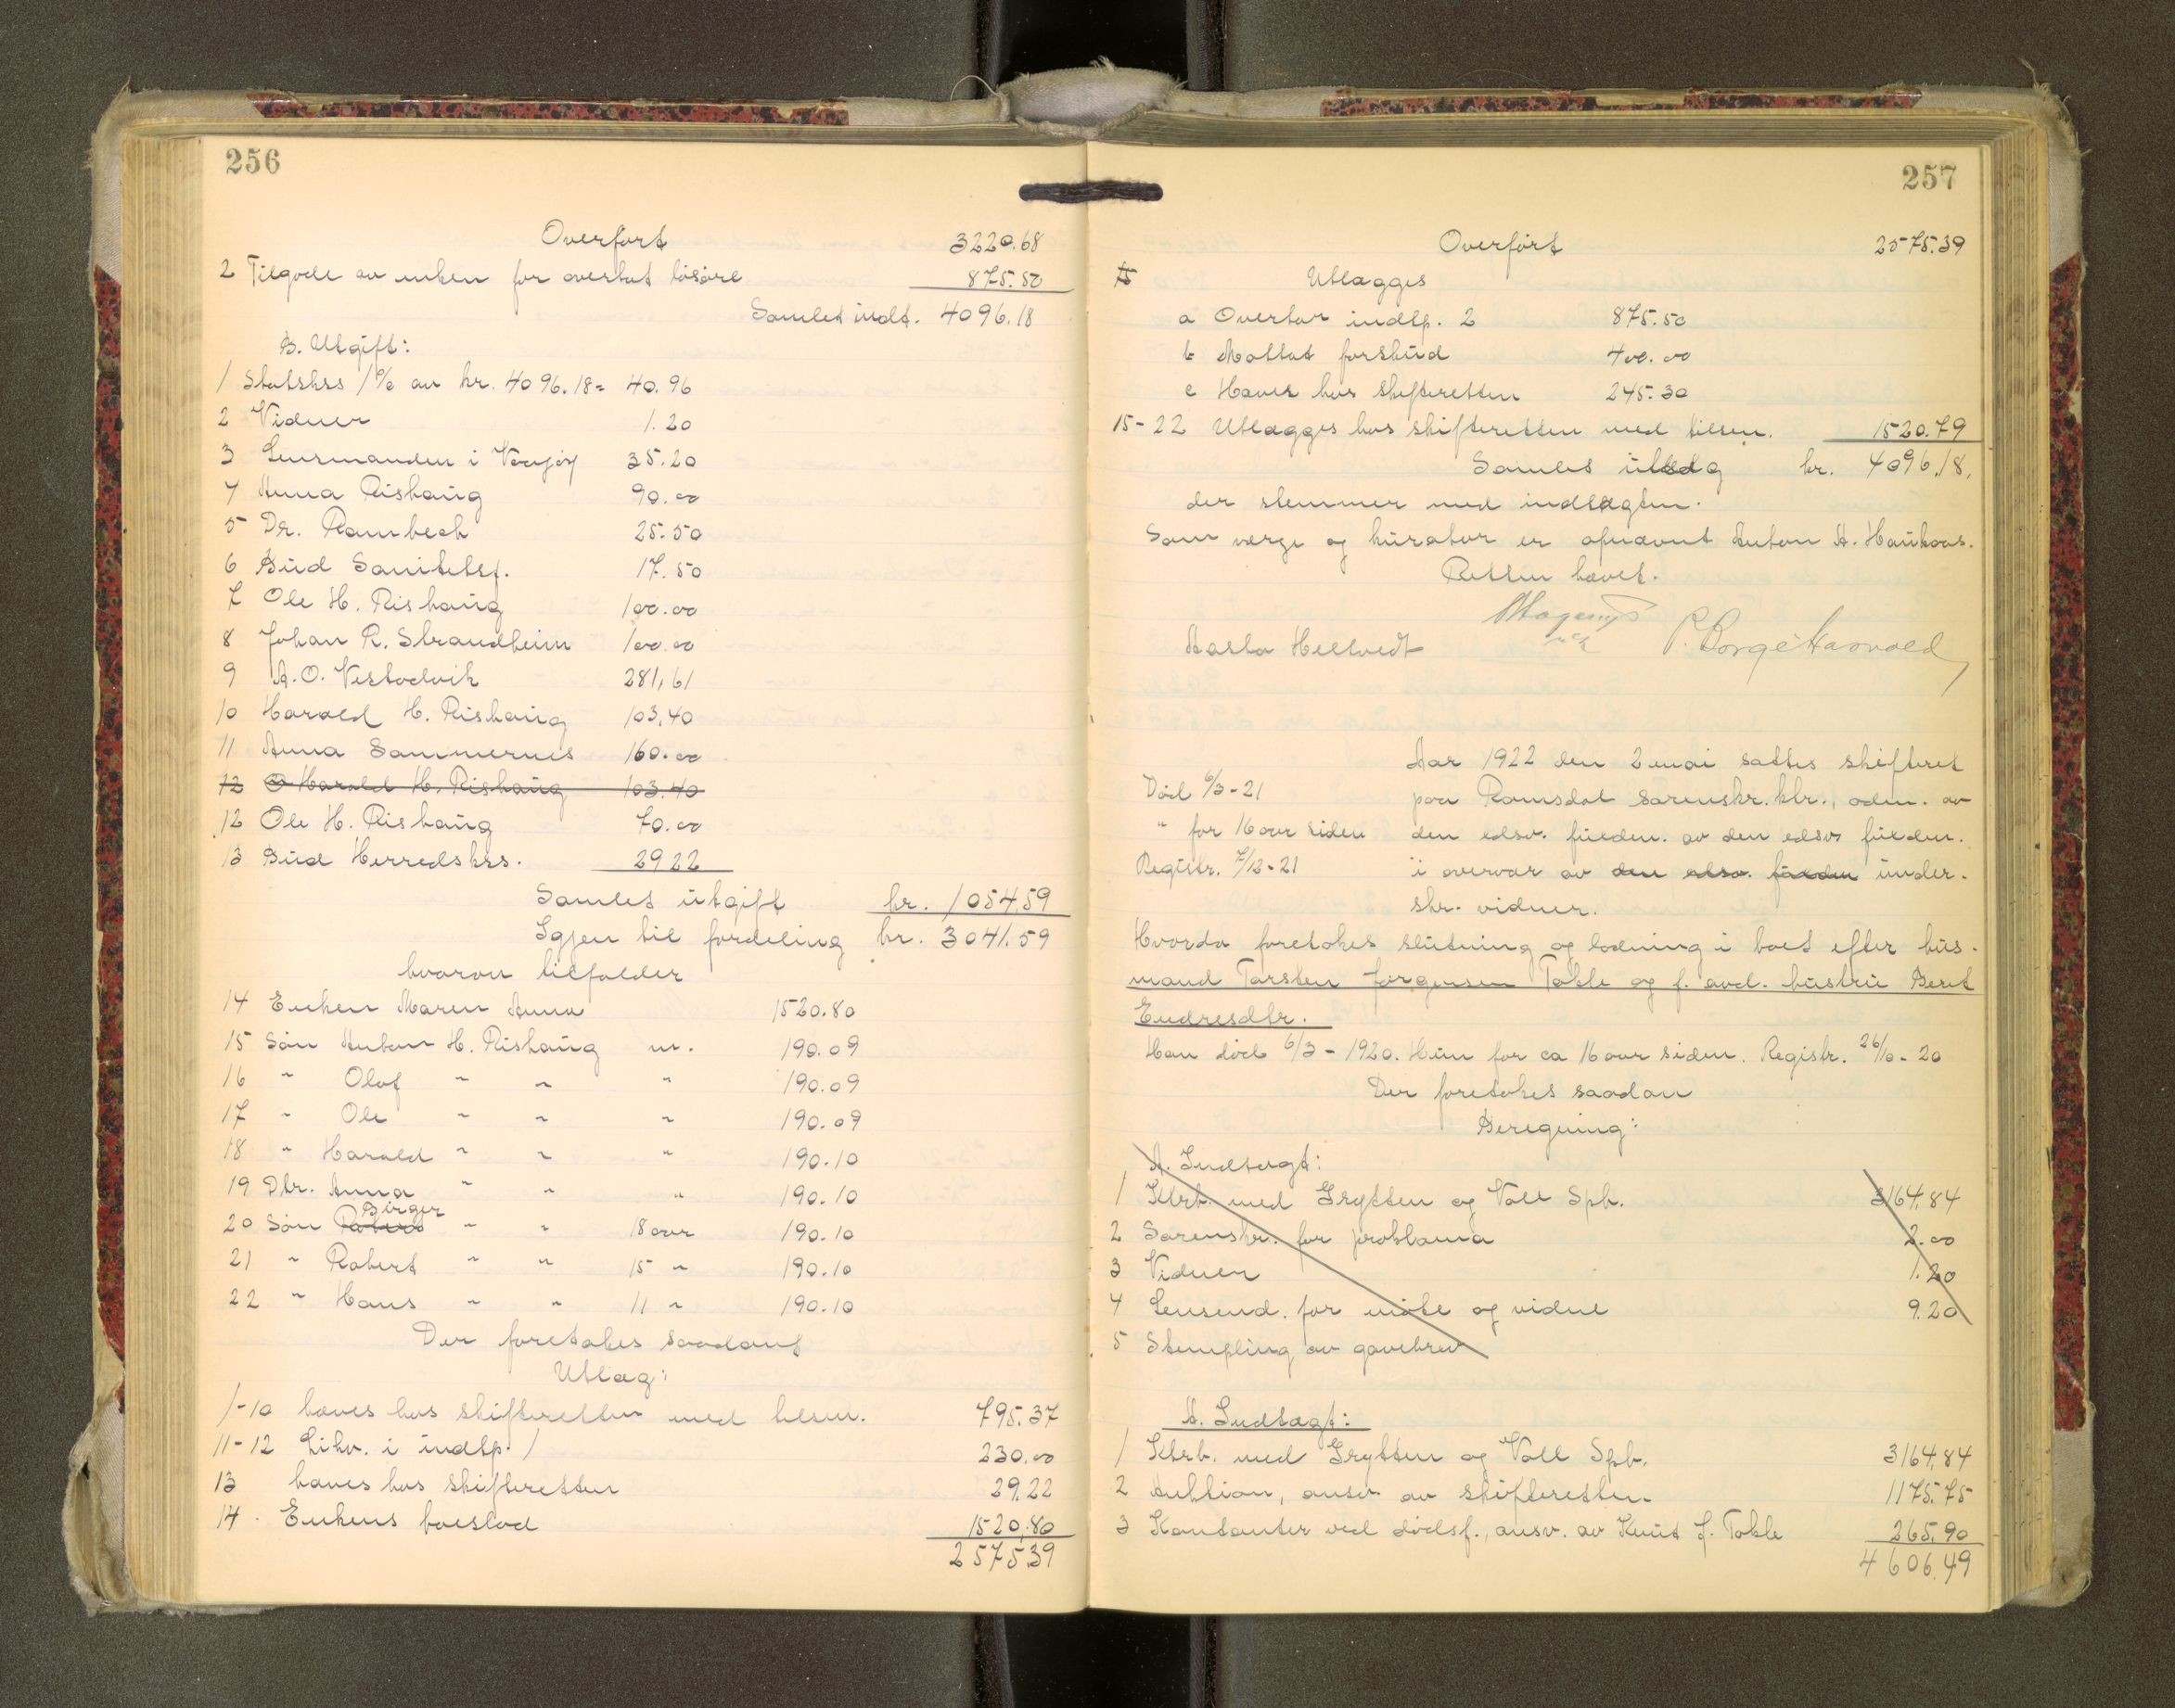 256
Overført 3220.68
2 Tilgode av enken for overtat løsøre 875.50
Samlet indt. 4096.18
B. Utgift:
1 Statskss 1% av kr. 4096.18= 40.96
2 Vidner 1.20
3 Lensmanden i 35.20
4 Anna Rishaug 90.00
5 Dr. Rambech 25.50
6 Bud Sanitetsf. 17.50
7 Ole H. Rishaug 100.00
8 Johan R. Strandheim 100.00
9 A.O. Vestadvik 281,61
10 Harald H. Rishaug 103,40
11 Anna Sammernes 160.00
12 O Harald H. Rishaug 103.40
12 Ole H. Rishaug 70.00
13 Bud Herredskss. 29.22
Samlet utgift kr. 1054.59
Igjen til fordeling kr. 3041.59
hvorav tilfalder
14 Enken Maren Anna 1520.80
15 Søn Anton H. Rishaug m. 190.09
16 " Olaf " " " 190.09
17 " Ole " " " 190.09
18 " Harald " " " 190.10
19 Dtr. Anna " " " 190.10
20 Søn Robert Birger " " 18 aar 190.10
21 " Robert " " 15 " 190.10
22 " Hans " " 11 " 190.10
Der foretokes saadant
Utlæg:
1-10 haves hos skifteretten med tilsm. 795.37
11-12 Likv. i indtp. 1 230.00
13 haves hos skifteretten 29.22
14 Enkens boeslod 1520.80
2575.39
257
Overført 2575.39
Utlægges
a Overtar indtp. 2 875.50
b Mottat forskud 400.00
c Haves hos skifteretten 245.30
15-22 Utlægges hos skifteretten med tilsm. 1520.79
Samlet utlæg kr. 4096.18,
der stemmer med indtægten.
Som verge og kurator er opnævnt Anton A. Haukaas.
Retten hævet.
Aasta Heltvedt P. Borge Aasvold
Aar 1922 den 2 mai sattes skifteret
paa Romsdal sorenskr.ktr., adm. av
den edsv. fuldm. av den edsv. fuldm.
i overvær av den edsv. fuldm under-
skr. vidner.
Død 6/3-21
" for 16 aar siden
Registr. 7/12-21
Hvorda foretokes slutning og lodning i boet efter hus-
mand Torsten Jørgensen Tokle og f. avd. hustru Beret
Endresdtr.
Han død 6/3-1920. Hun for ca 16 aar siden. Registr. 26/10-20
Der foretokes saadan
Beregning:
A. Indtægt:
1 Ktrb. med Grytten og Voll Spb. 3164,84
2 Sorenskr. for proklama 2.00
3 Vidner 1.20
4 Lensmd. for møte og vidne 9.20
5 Stempling av gavebrev
A. Indtægt:
1 Ktrb. med Grytten og Voll Spb. 3164,84
2 Auktion, ansv. av skifteretten 1175.75
3 Kontanter ved dødsf., ansv. av Knut J. Tokle 265,90
4606.49